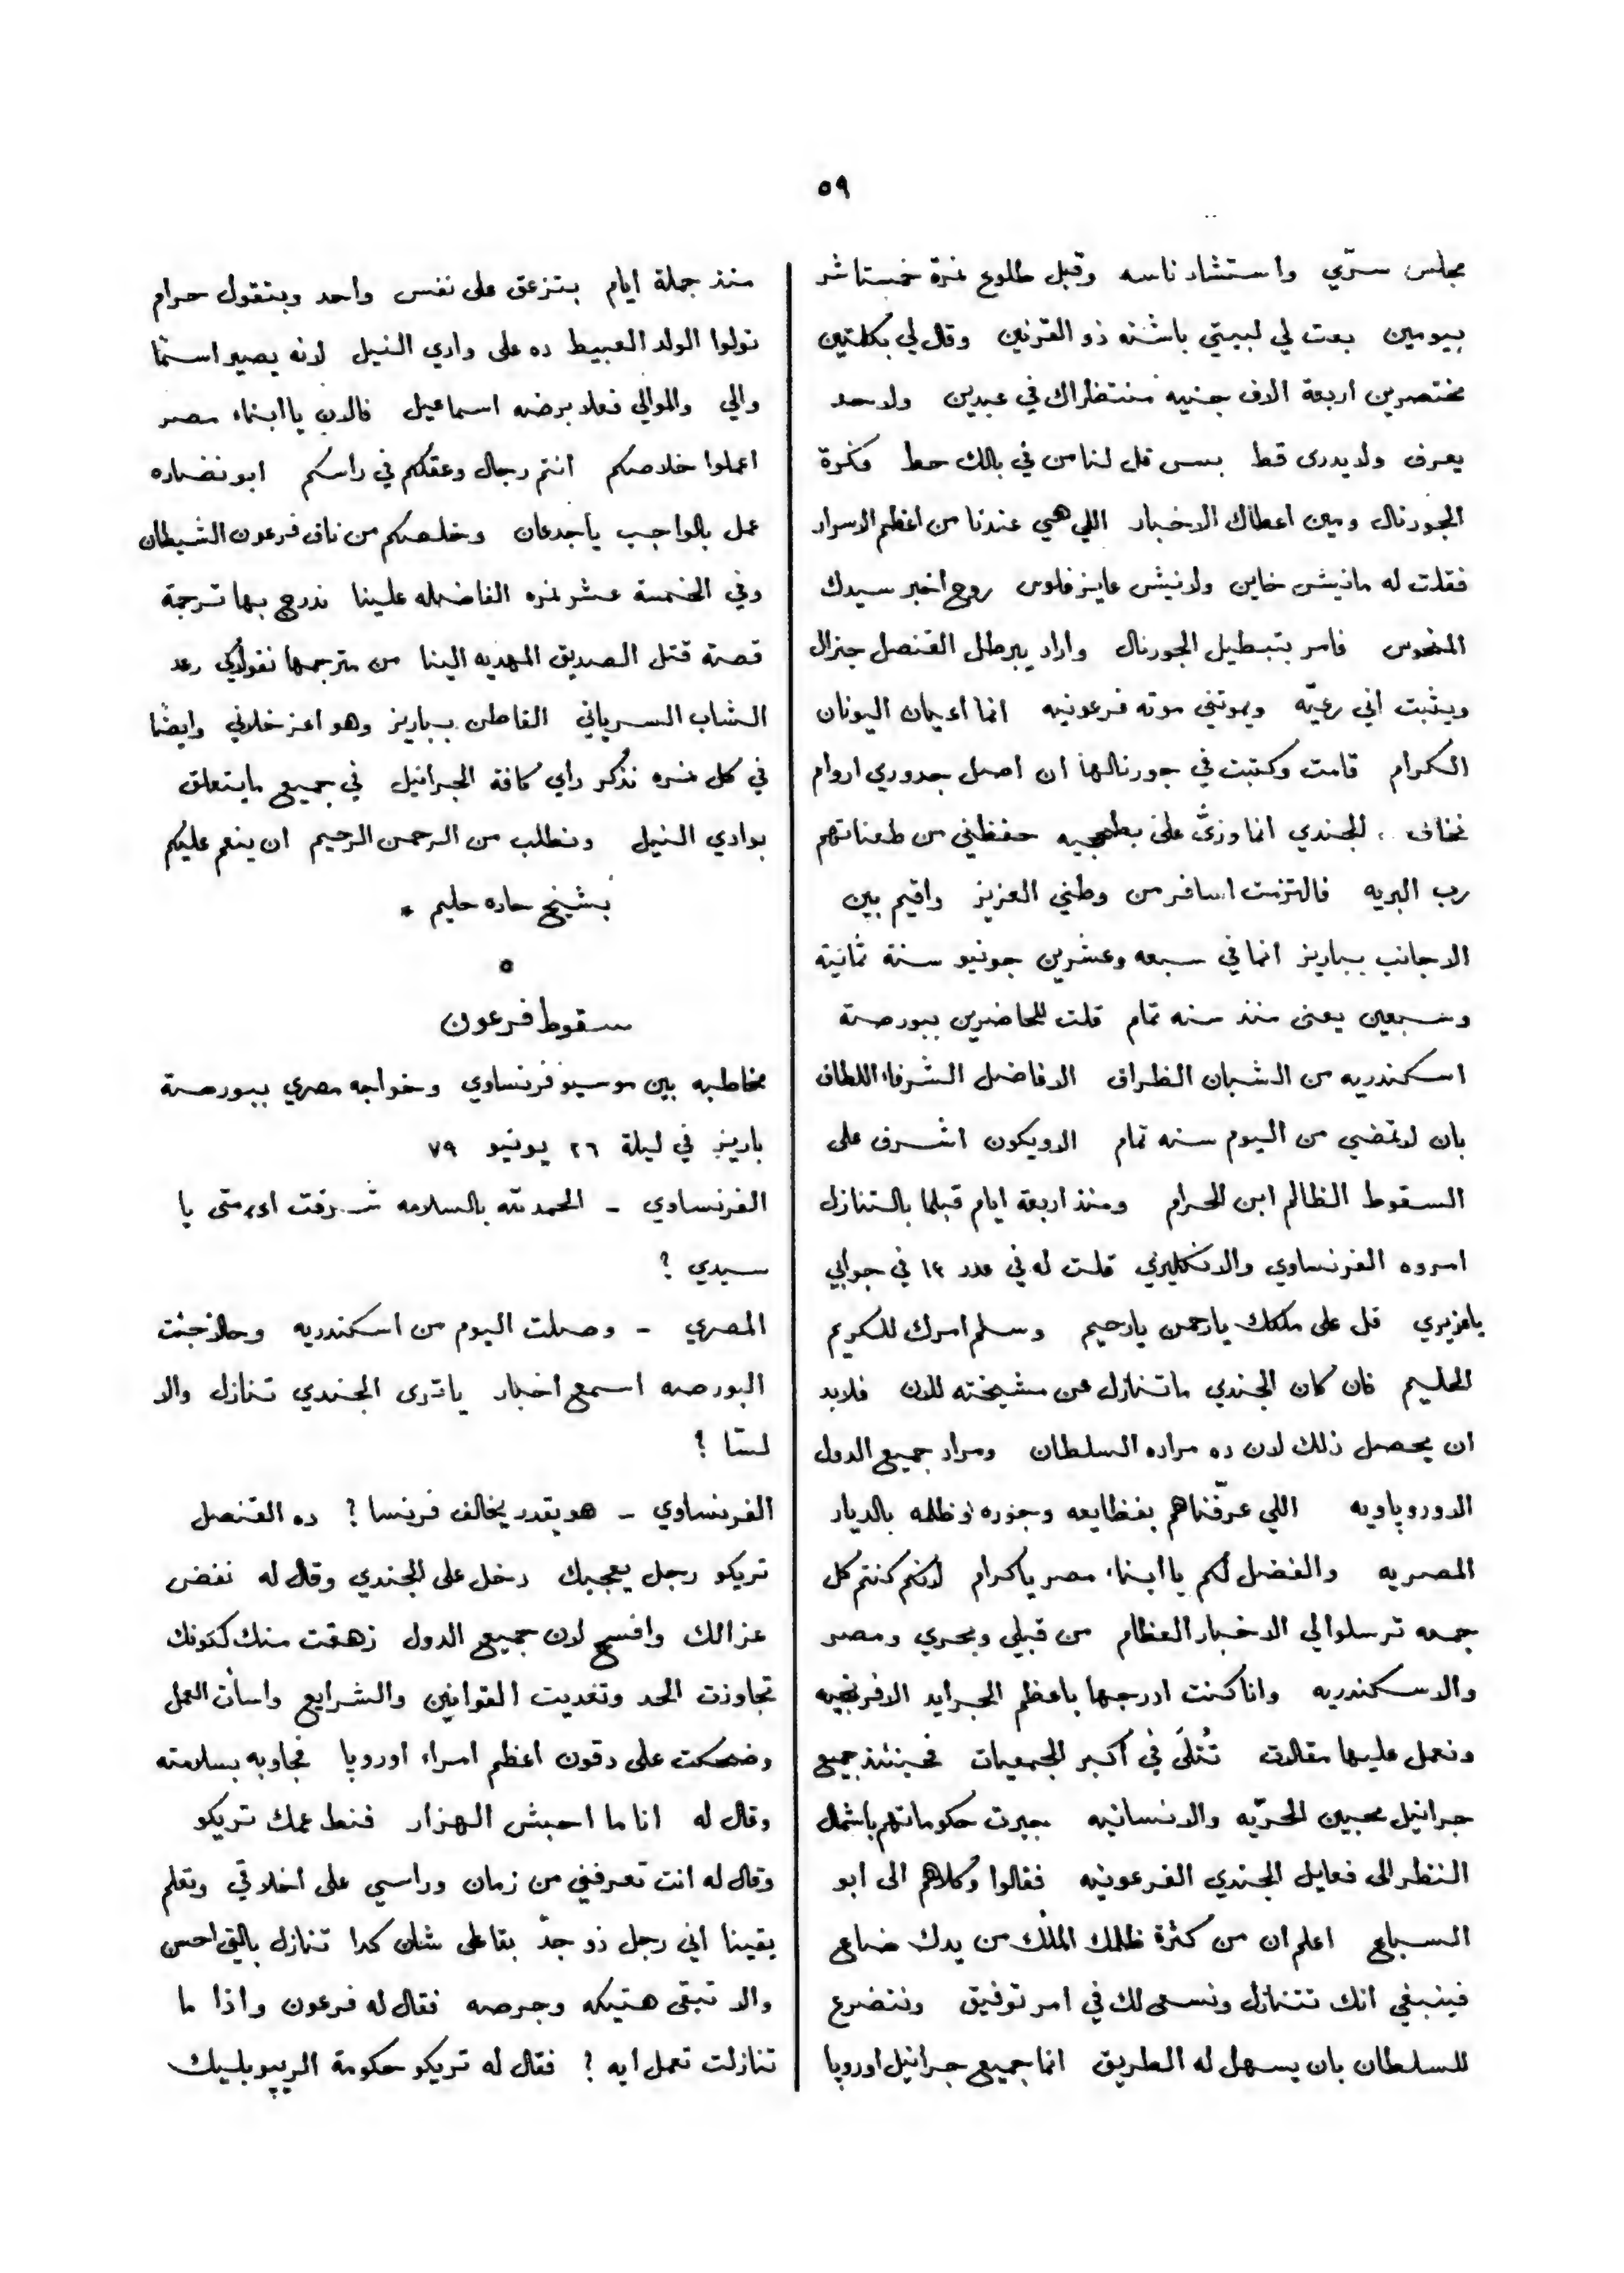 ٥٩
مجلس سرّي واستشاد ناسه وقبل طلوع نمرة خمستاشر
بيومين بعت لي لبيتي باشته ذو القرنين وقال لي بكلمتين
مختصرين اربعة الاف جنيه منتظراك في عبدين ولا حد
يعرف ولا يدرى قط بس قل لنا من في بالك حط فكرة
الجورنال ومين اعطاك الاخبار اللي هي عندنا من اعظم الاسرار
فقلت له مانيش خاين ولا نيش عايز فلوس روح اخبر سيدك
المنحوس فامر بتبطيل الجورنال واراد يبرطل القنصل جنرال
ويثبت اني رعيّه ويموتني موته فرعونيه انما اعيان اليونان
الكرام قامت وكتبت في جورنالها ان اصل جدوري اروام
فخاف الجندي انما وزّ علىّ بطلجيه حفظني من طعناتهم
رب البريه فالتزمت اسافر من وطني العزيز واقيم بين
الاجانب بباريز انما في سبعه وعشرين جونيو سنة ثمانية
وسبعين يعنى منذ سنه تمام قلت للحاضرين ببورصة
اسكندريه من الشبان الظراف الافاضل الشرفاء اللطاف
بان لا تمضي من اليوم سنه تمام الا ويكون اشرف على
السقوط الظالم ابن الحرام ومنذ اربعة ايام قبلما بالتنازل
امروه الفرنساوي والانكليزي قلت له في عدد ١٤ في جوابي
يا عزيزي قل على ملكك يا رحمن يا رحيم وسلم امرك للكريم
الحليم فان كان الجندي ما تنازل عن مشيخته للان فلابد
ان يحصل ذلك لان ده مراده السلطان ومراد جميع الدول
الاوروپاويه اللي عرّفناهم بفظايعه وجوره وظلمه بالديار
المصريه والفضل لكم يا ابناء مصر يا كرام لانكم كنتم كل
جمعه ترسلوا لي الاخبار العظام من قبلي وبحري ومصر
والاسكندريه وانا كنت ادرجها باعظم الجرايد الافرنجيه
ونعمل عليها مقالات تُتلَى في أكبر الجمعيات فحينئذ جميع
جرانيل محبين الحرّيه والانسانيه جبرت حكوماتهم باشمال
النظر الى فعايل الجندي الفرعونيه فقالوا وكلاهم الى ابو
السباع اعلم ان من كثرة ظلمك الملك من يدك ضاع
فينبغي انك تتنازل ونسعى لك في امر توفيق ونتضرع
للسلطان بان يسهل له الطريق انما جميع جرانيل اوروپا
منذ جملة ايام بتزعق على نفس واحد وبتقول حرام
تولوا الولد العبيط ده على وادي النيل لانه يصير اسمًا
والي والموالي فعلا برضه اسماعيل فالان يا ابناء مصر
اعملوا خلاصكم انتم رجال وعقلكم في راسكم ابو نضاره
عمل بالواجب يا جدعان وخلصكم من ناف فرعون الشيطان
وفي الخمسة عشر نمره الفاضله علينا ندرج بها ترجمة
قصة قتل الصديق المهديه الينا من مترجمها نقولاكي رعد
الشاب السرياني القاطن بباريز وهو اعز خلاني وايضًا
في كل نمره نذكر راي كافة الجرانيل في جميع ما يتعلق
بوادي النيل ونطلب من الرحمن الرحيم ان ينعم عليكم
بشيخ حاره حليم *
سقوط فرعون
مخاطبه بين موسيو فرنساوي وخواجه مصري ببورصة
باريز في ليلة ٢٦ يونيو ٧٩
الفرنساوي ـ الحمد لله بالسلامه شرفت امتى يا
سيدي ؟
المصري ـ وصلت اليوم من اسكندريه وحالا جئت
البورصه اسمع اخبار يا ترى الجندي تنازل والا
لسّا ؟
الفرنساوي ـ هو يقدر يخالف فرنسا ؟ ده القنصل
تريكو رجل يعجبك دخل على الجندي وقال له نفض
عزالك وافسح لان جميع الدول زهقت منك لكونك
تجاوزت الحد وتعديت القوانين والشرايع واسأت العمل
وضحكت على دقون اعظم امراء اوروپا فجاوبه بسلامته
وقال له انا ما احبش الهزار فنط عمك تريكو
وقال له انت تعرفني من زمان وراسي على اخلاقي وتعلم
يقينا اني رجل ذو جدّ بقا على شان كدا تنازل بالتي احسن
والا تبقى هتيكه وجرصه فقال له فرعون واذا ما
تنازلت تعمل ايه ؟ فقال له تريكو حكومة الريپوبليك